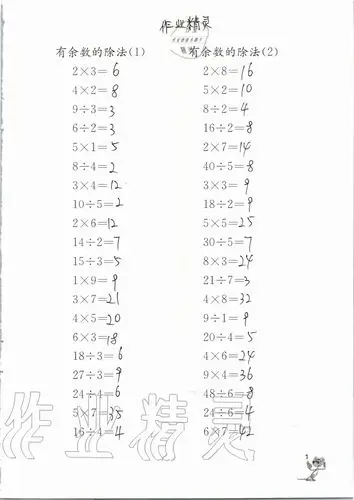 作业精灵
有余数的除法(1)
2×3=6
4×2=8
9÷3=3
6÷2=3
5×1=5
8÷4=2
3×4=12
10÷5=2
2×6=12
14÷2=7
15÷3=5
1×9=9
3×7=21
4×5=20
6×3=18
18÷3=6
27÷3=9
24÷4=6
5×7=35
16÷4=4
有余数的除法(2)
2×8=16
5×2=10
8÷2=4
16÷2=8
2×7=14
40÷5=8
3×3=9
18÷2=9
5×5=25
30÷5=7
8×3=24
21÷7=3
4×8=32
9÷1=9
20÷4=5
4×6=24
9×4=36
48÷6=8
24÷6=4
6×7=42
作业精灵
1